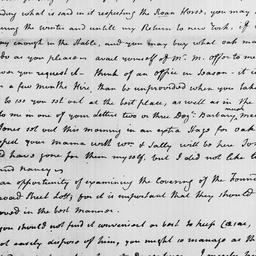 ding what is said in it respecting the Roan Horse, you may
ering the winter and until my Return to New York, if
ny enough in the Stable, and you may buy what oak m
do as you please in avail yourself of Mr. M. offer to me
won you request it. think of an office in Season. it is
n a few months Hire, than be unprovided when you take
to see you set out at the best place, as well as in the
to me in one of your Letters two or three Dogs. Barbary, Mac
Jones set out this morning in an extra Stage for oak
spect your Mama with Wm & Sally will be here Tom
d have gone for them myself, but I did not like to
and Nancy
an opportunity of examining the covering of the Tunn
road Street Lott, for it is important that they should
oved in the best Manner.
you should not find it convenient or best to keep Caesar,
ot easily dispose of him, you might so manage as th